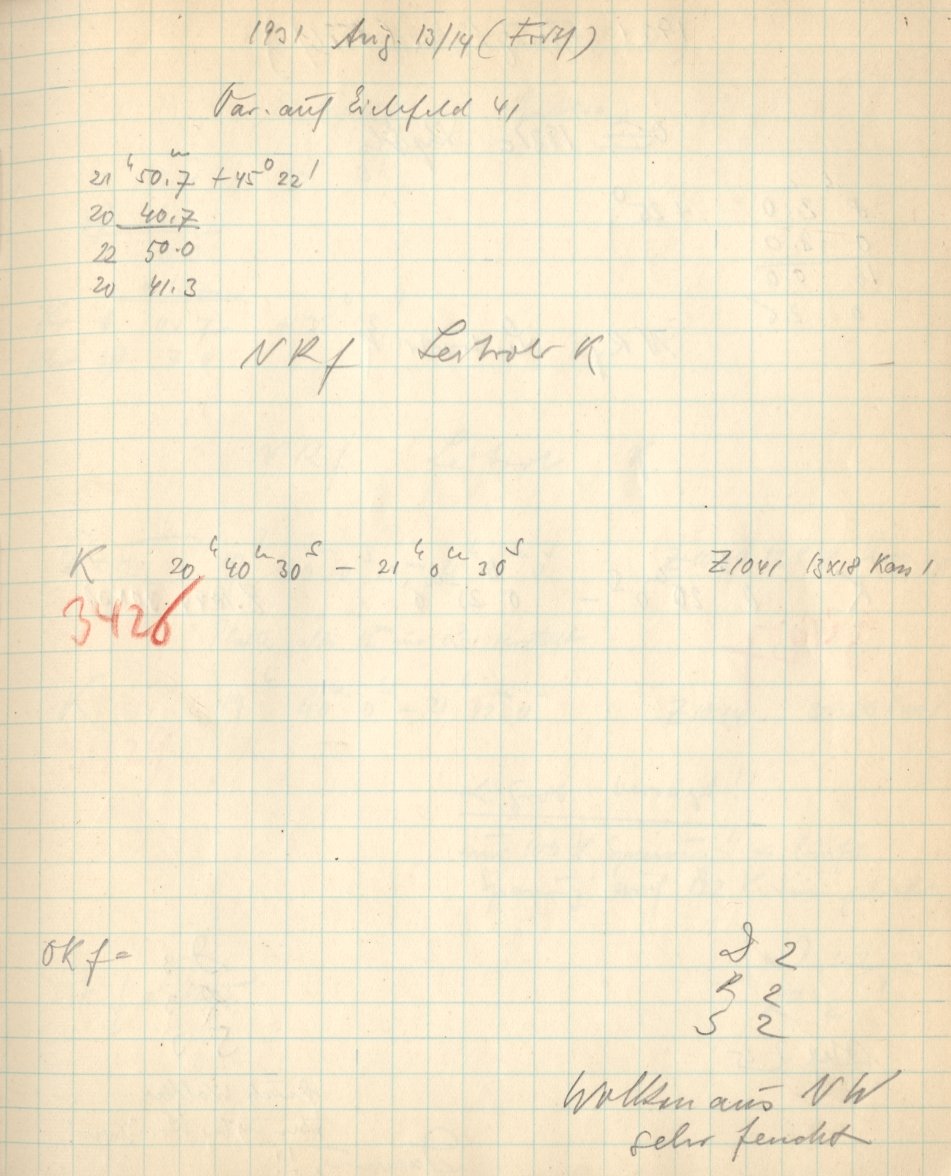 1931 Aug. 13/14 (
Var. auf Eichfeld 41
21ʰ 50.ᵐ7 +45° 22'
20 40.7
22 50.0
20 41.3
NRf Leitrohr K
K 20ʰ 40ᵐ 30ˢ – 21ʰ 0ᵐ 30ˢ Z1041 13x18 Kass 1
3426
OKf=
D 2
R 2
S 2
Wolken aus NW
sehr feucht